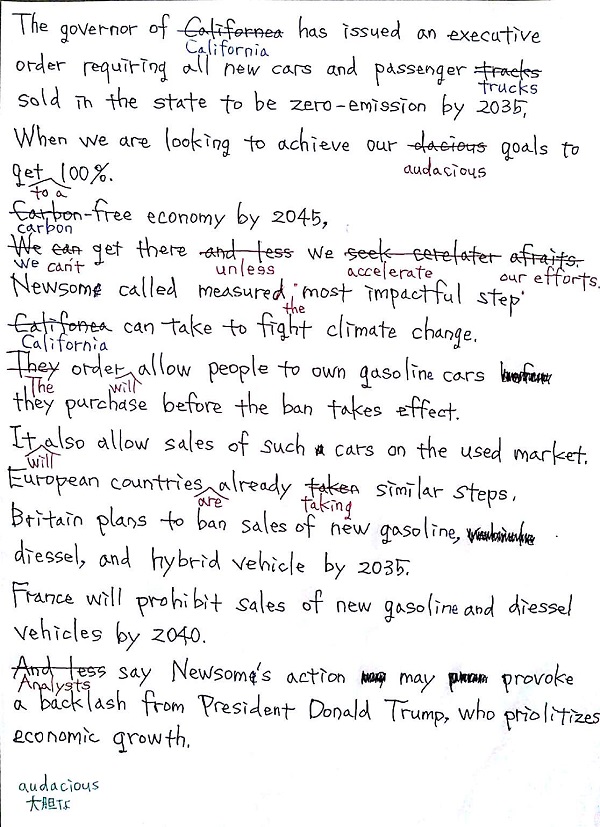 The governor of Californea has issued an executive
California
order requiring all new cars and passenger tracks
trucks
sold in the state to be zero-emission by 2035,
When we are looking to achieve our dacious goals to
audacious
get 100%.
to a
Carbon-free economy by 2045,
carbon
We can get there and less we seek cerelater afraits.
we can't unless accelerate our efforts.
Newsome called measured, most impactful step
the
Califonea can take to fight climate change.
California
They order allow people to own gasoline cars
The will
they purchase before the ban takes effect.
It also allow sales of such cars on the used market.
will
European countries already taken similar steps.
are taking
Britain plans to ban sales of new gasoline,
diessel, and hybrid vehicle by 2035.
France will prohibit sales of new gasoline and diessel
vehicles by 2040.
And less say Newsome's action may provoke
Analysts
a backlash from President Donald Trump, who priolitizes
economic growth.
audacious
大胆な